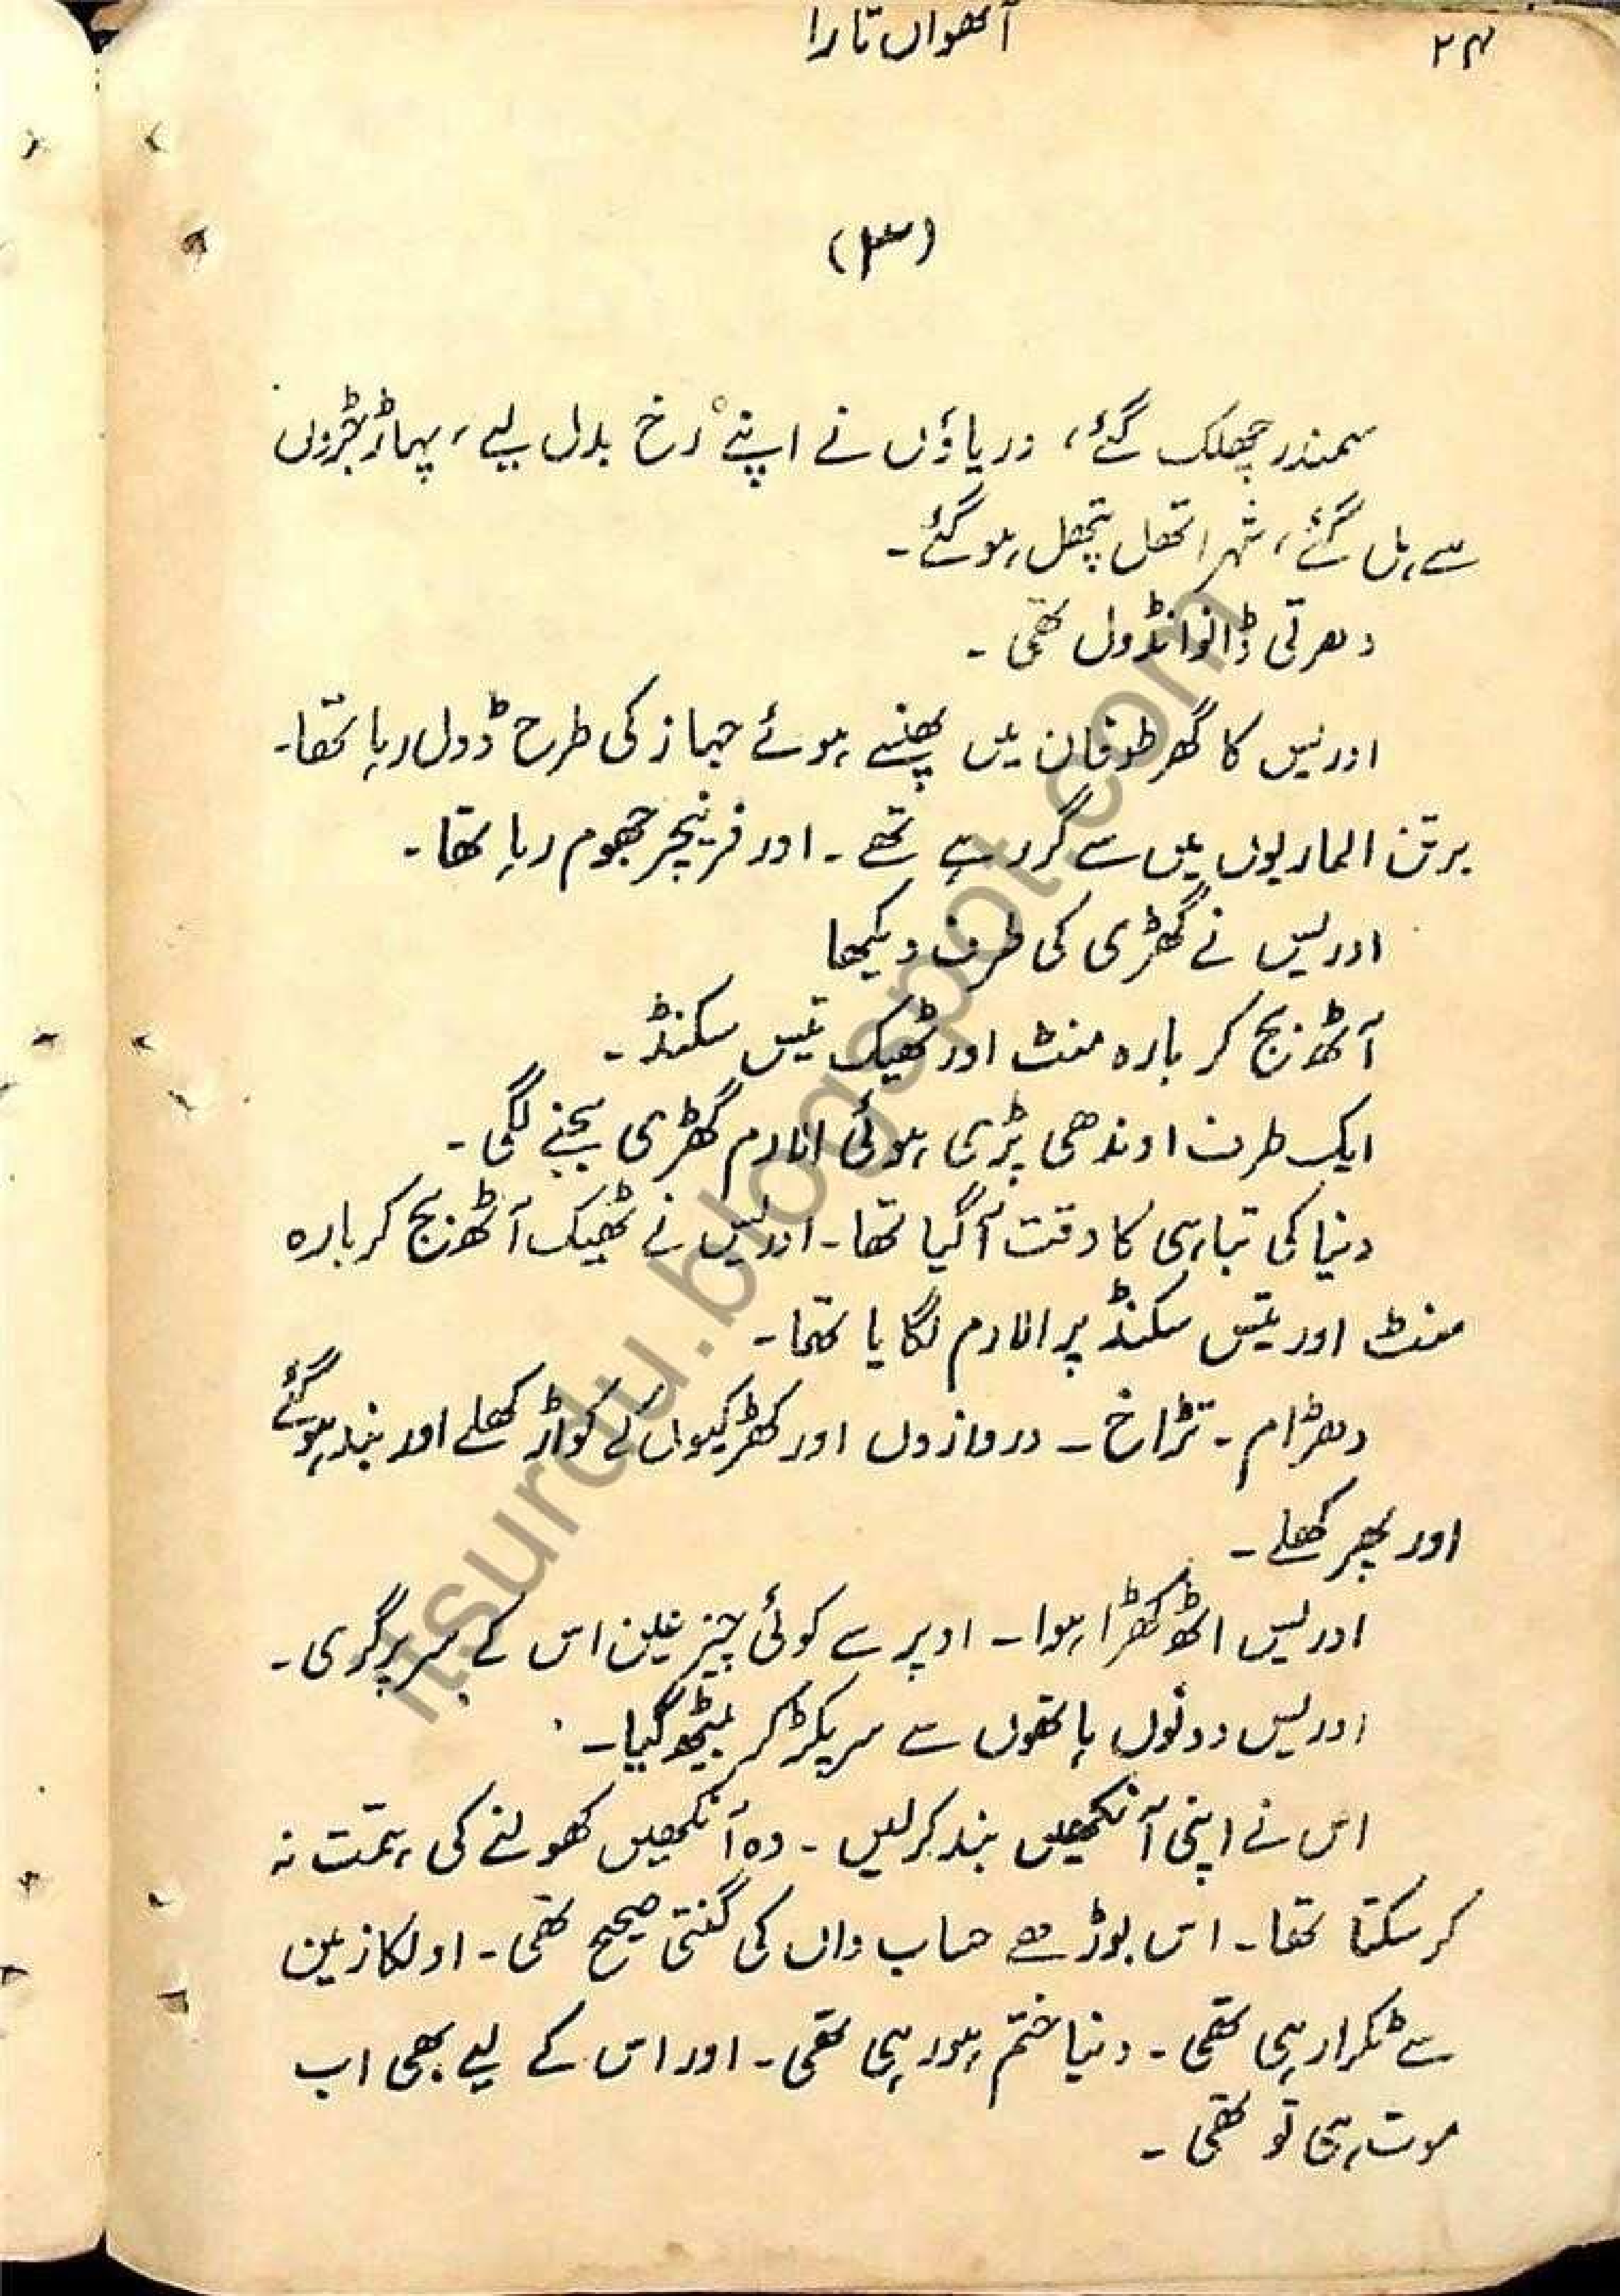 ۲۴
آٹھواں تارا
(۳)
سمندر چھلک گئے، دریاؤں نے اپنے رُخ بدل لیے، پہاڑ جڑوں
سے ہل گئے، شہر اتھل پتھل ہو گئے۔
دھرتی ڈانوانڈول تھی۔
ادریس کا گھر طوفان میں پھنسے ہوئے جہاز کی طرح ڈول رہا تھا۔
برتن الماریوں میں سے گر رہے تھے۔ اور فرنیچر جھوم رہا تھا۔
ادریس نے گھڑی کی طرف دیکھا
آٹھ بج کر بارہ منٹ اور ٹھیک تیس سکنڈ۔
ایک طرف اوندھی پڑی ہوئی الارم گھڑی بجنے لگی۔
دنیا کی تباہی کا وقت آگیا تھا۔ ادریس نے ٹھیک آٹھ بج کر بارہ
منٹ اور تیس سکنڈ پر الارم لگایا تھا۔
دھڑام۔ تڑاخ۔ دروازوں اور کھڑکیوں کے کواڑ کھلے اور بند ہو گئے
اور پھر کھلے۔
ادریس اٹھ کھڑا ہوا۔ اوپر سے کوئی چیز عین اس کے سر پر گری۔
ادریس دونوں ہاتھوں سے سر پکڑ کر بیٹھ گیا۔
اس نے اپنی آنکھیں بند کر لیں۔ وہ آنکھیں کھولنے کی ہمّت نہ
کر سکتا تھا۔ اس بوڑھے حساب داں کی گنتی صحیح تھی۔ اولکا زمین
سے ٹکرا رہی تھی۔ دنیا ختم ہو رہی تھی۔ اور اس کے لیے بھی اب
موت ہی تو تھی۔
itsurdu.blogspot.com